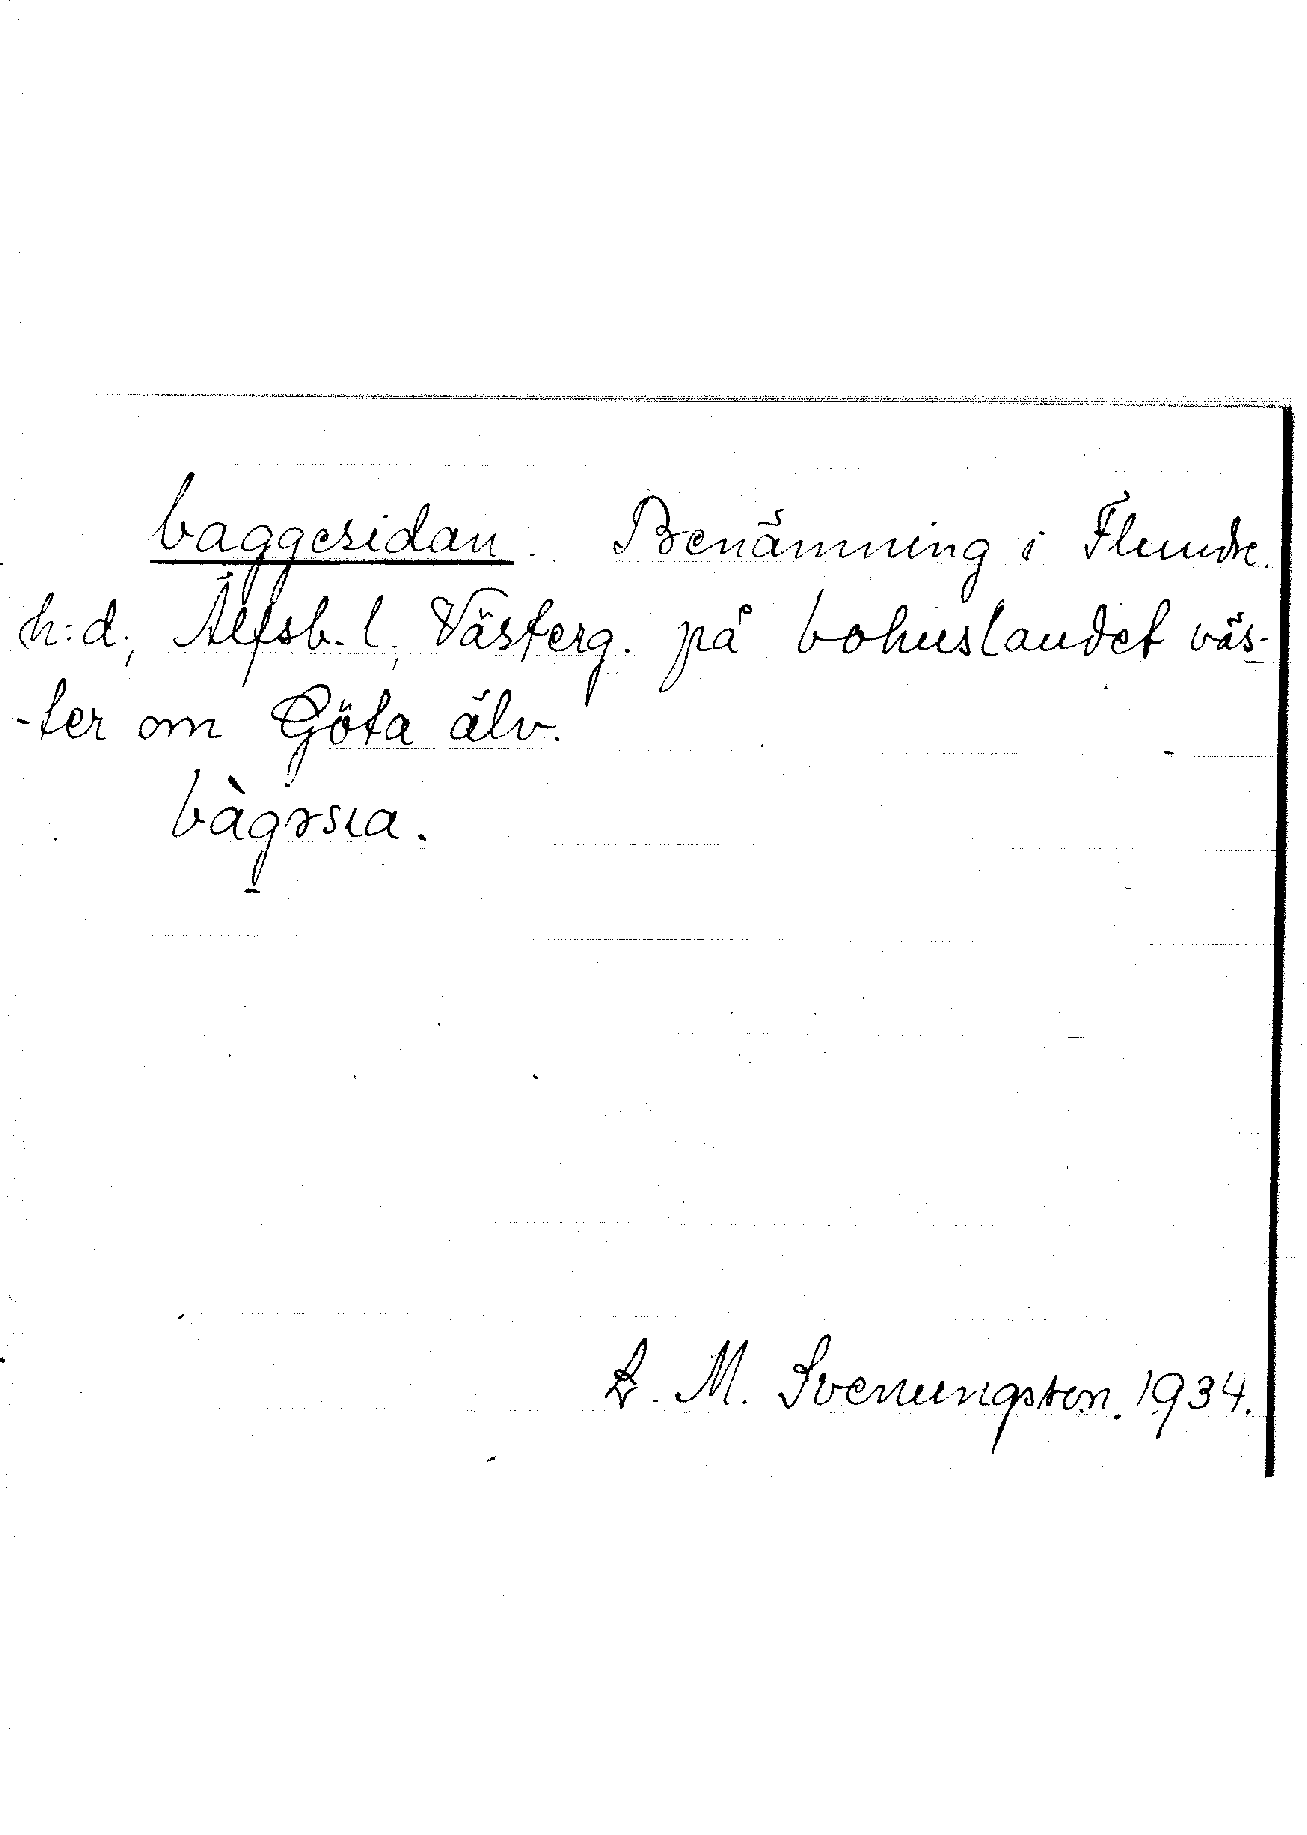 baggesidan. Benämning i Flundre
h:d, Älfsb. l, Västerg. på bohuslandet väs-
-ter om Göta älv.
bàg̠ɘsıa.
L. M. Svenungsson. 1934.